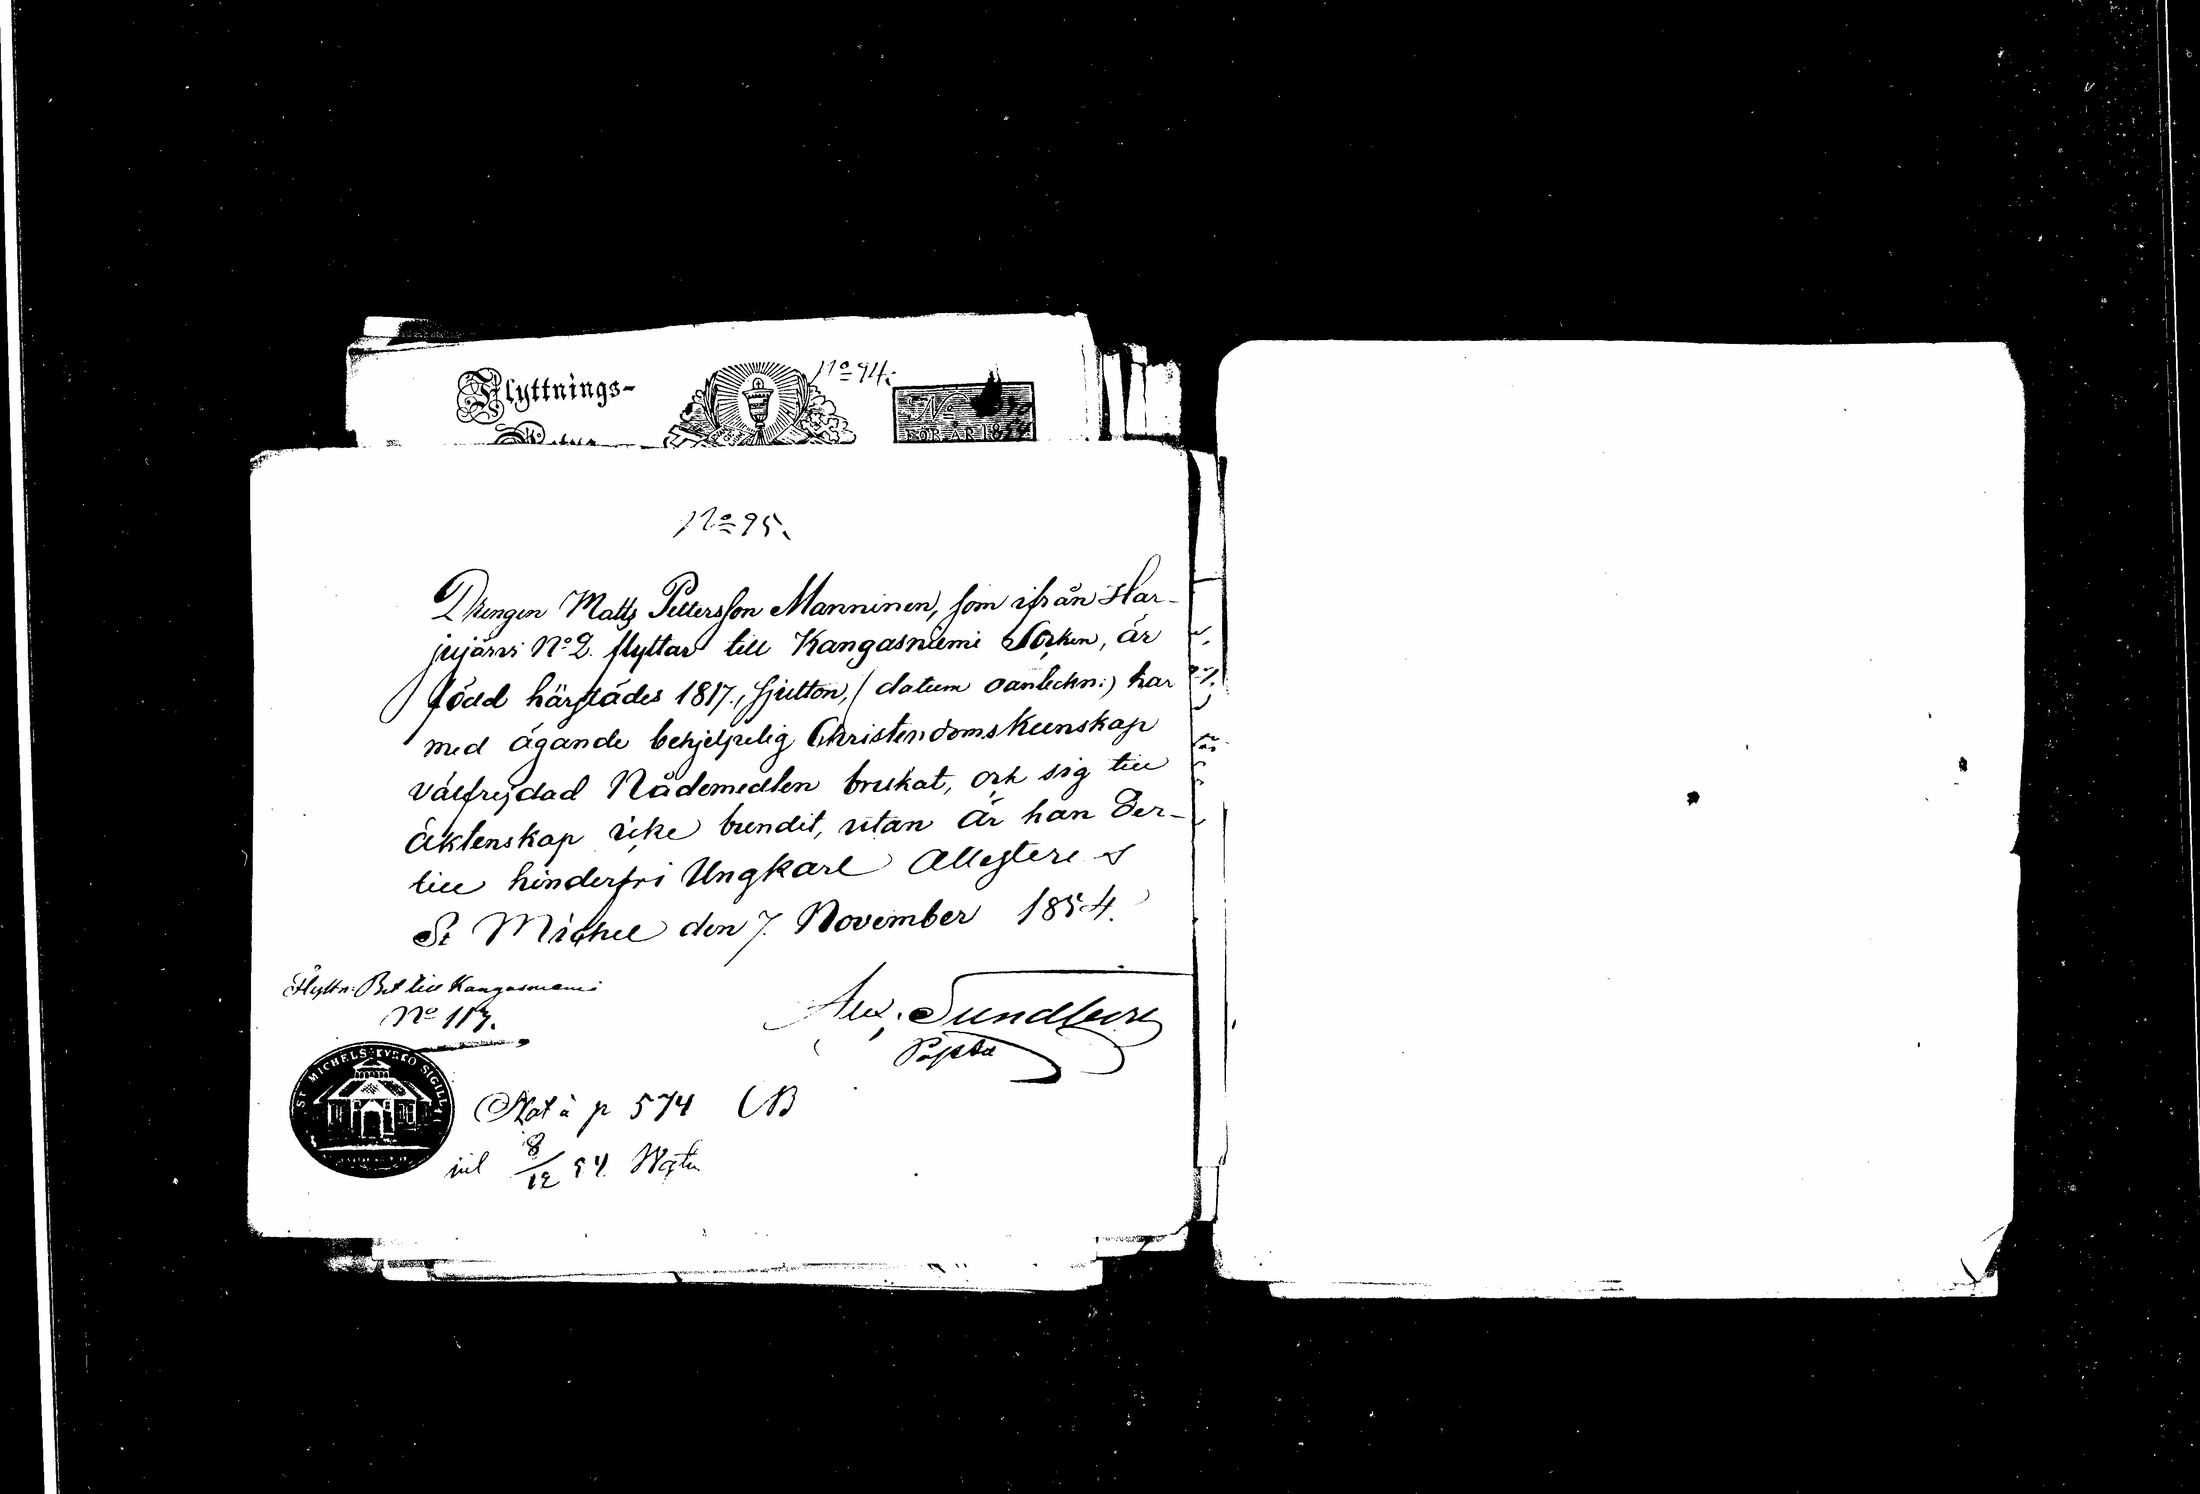 Flyttnings-
No 94.
No
FÖR ÅR 1854
No 95.
Drengen Matts Pettersson Manninen, som ifrån Har-
jujärvi No 2. flyttar till Kangasniemi Socken, är
född härstädes 1817, sjutton, (datum oanteckn:) har
med ägande behjelpelig Christendoms Kunskap
välfrejdad Nådemedlen brukat, och sig till
äktenskap icke bundit, utan är han der-
till hinderfri Ungkarl Attestere
St Michel den 7. November 1854.
Flyttn: Bet till Kangasniemi
No 117.
Alex. Sundberg
ST MICHELS KYRKO SIGILL
Not à p 574 CB
inl 8/12 54.